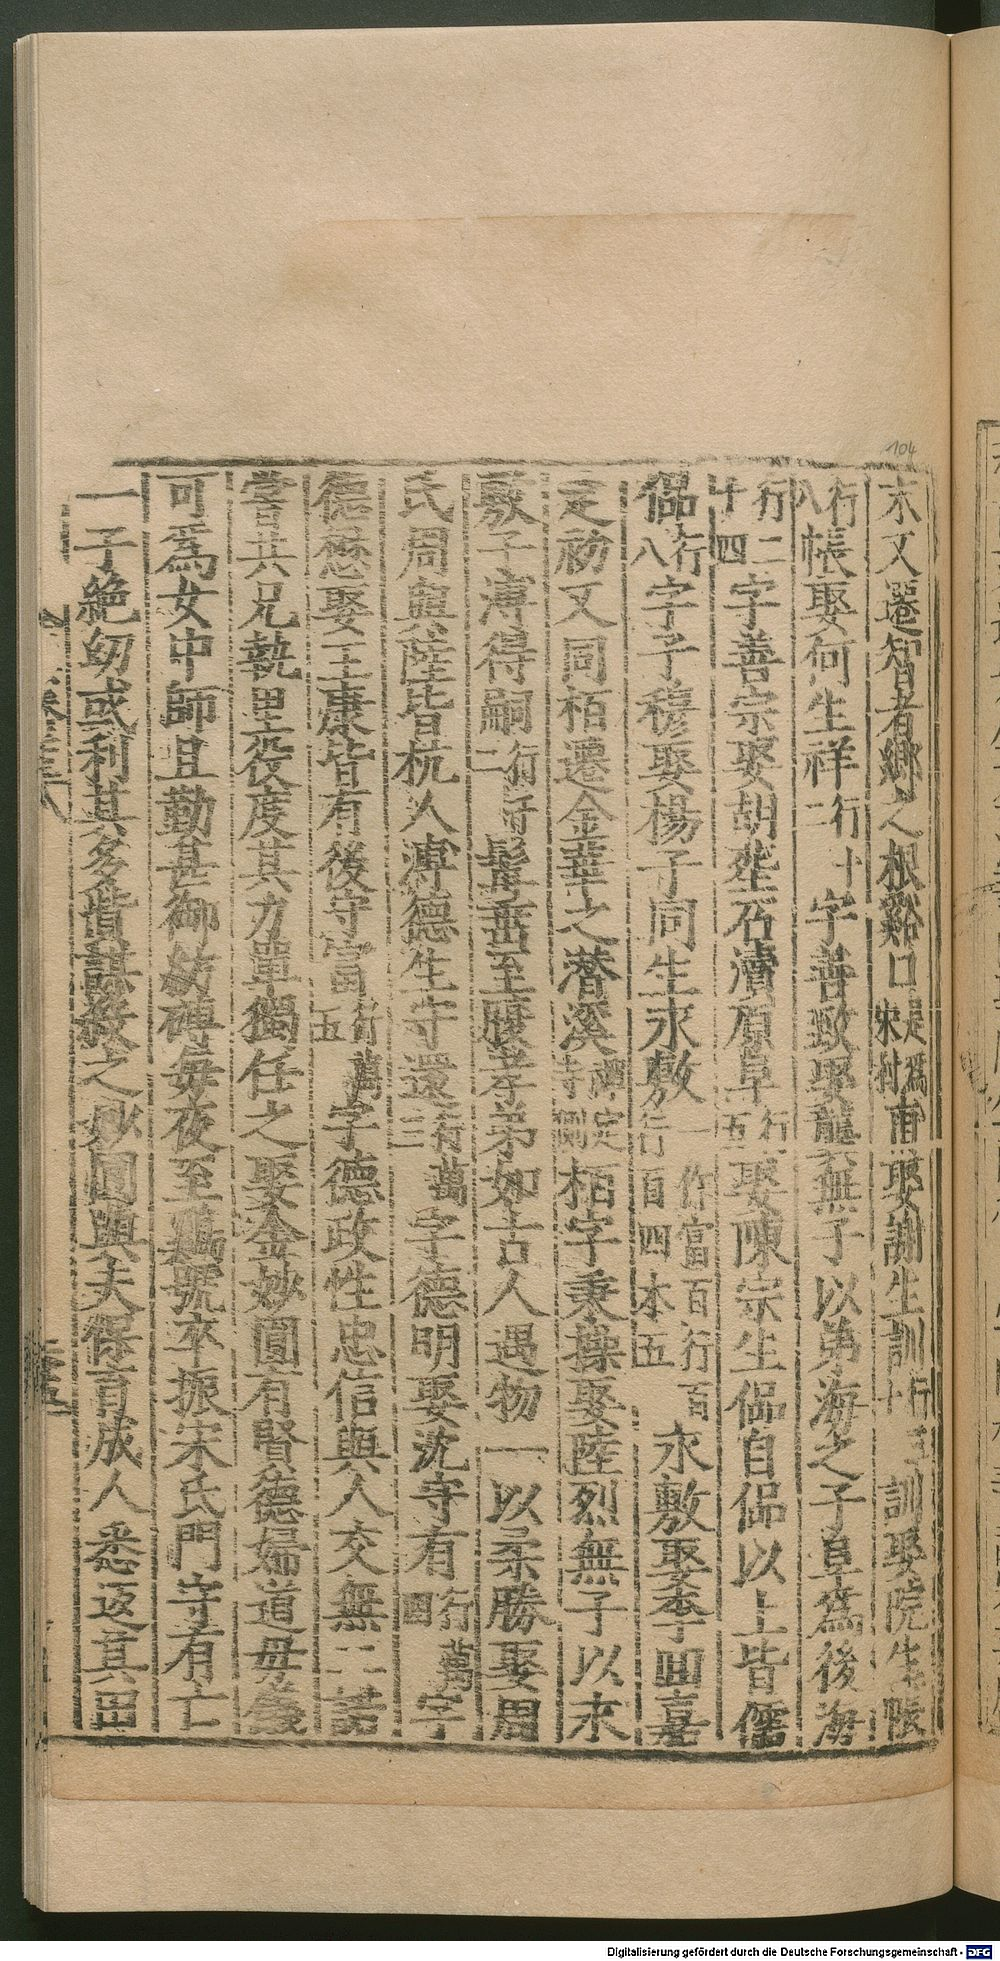 104
末又遷智者鄉之根谿口是為宋村甫娶謝生訓行三十訓娶阮生悵
行八悵娶何生祥行十二字善致娶龍無子以弟海之子阜為後海
行二十四字善宗娶胡塟石瀆原阜行五娶陳宗生侶自侶以上皆儒
侶行八字子穆娶楊子同生永敷一作富百行百方行百四本五永敷娶李國嘉
定初又同柏遷金華之潛溪柏字秉操娶陸烈無子以永
敷子溥得嗣髯垂至腹孝弟如古人遇物一以柔勝娶周
氏周與陸皆杭人溥德生守還行萬三字德明娶沈守有行萬四字
德懋娶王康皆有後守富行萬五字德政性忠信與人交無二諾
嘗共兄執里役度其力單獨任之娶金妙圓有賢德婦道母儀
可為女中師且勤甚御紡磚每夜至鷄號卒振宋氏門守有亡
一子絶幼或利其多貲謀發之妙圓與夫保育成人悉返其田
Digitalisierung gefördert durch die Deutsche Forschungsgemeinschaft - DFG